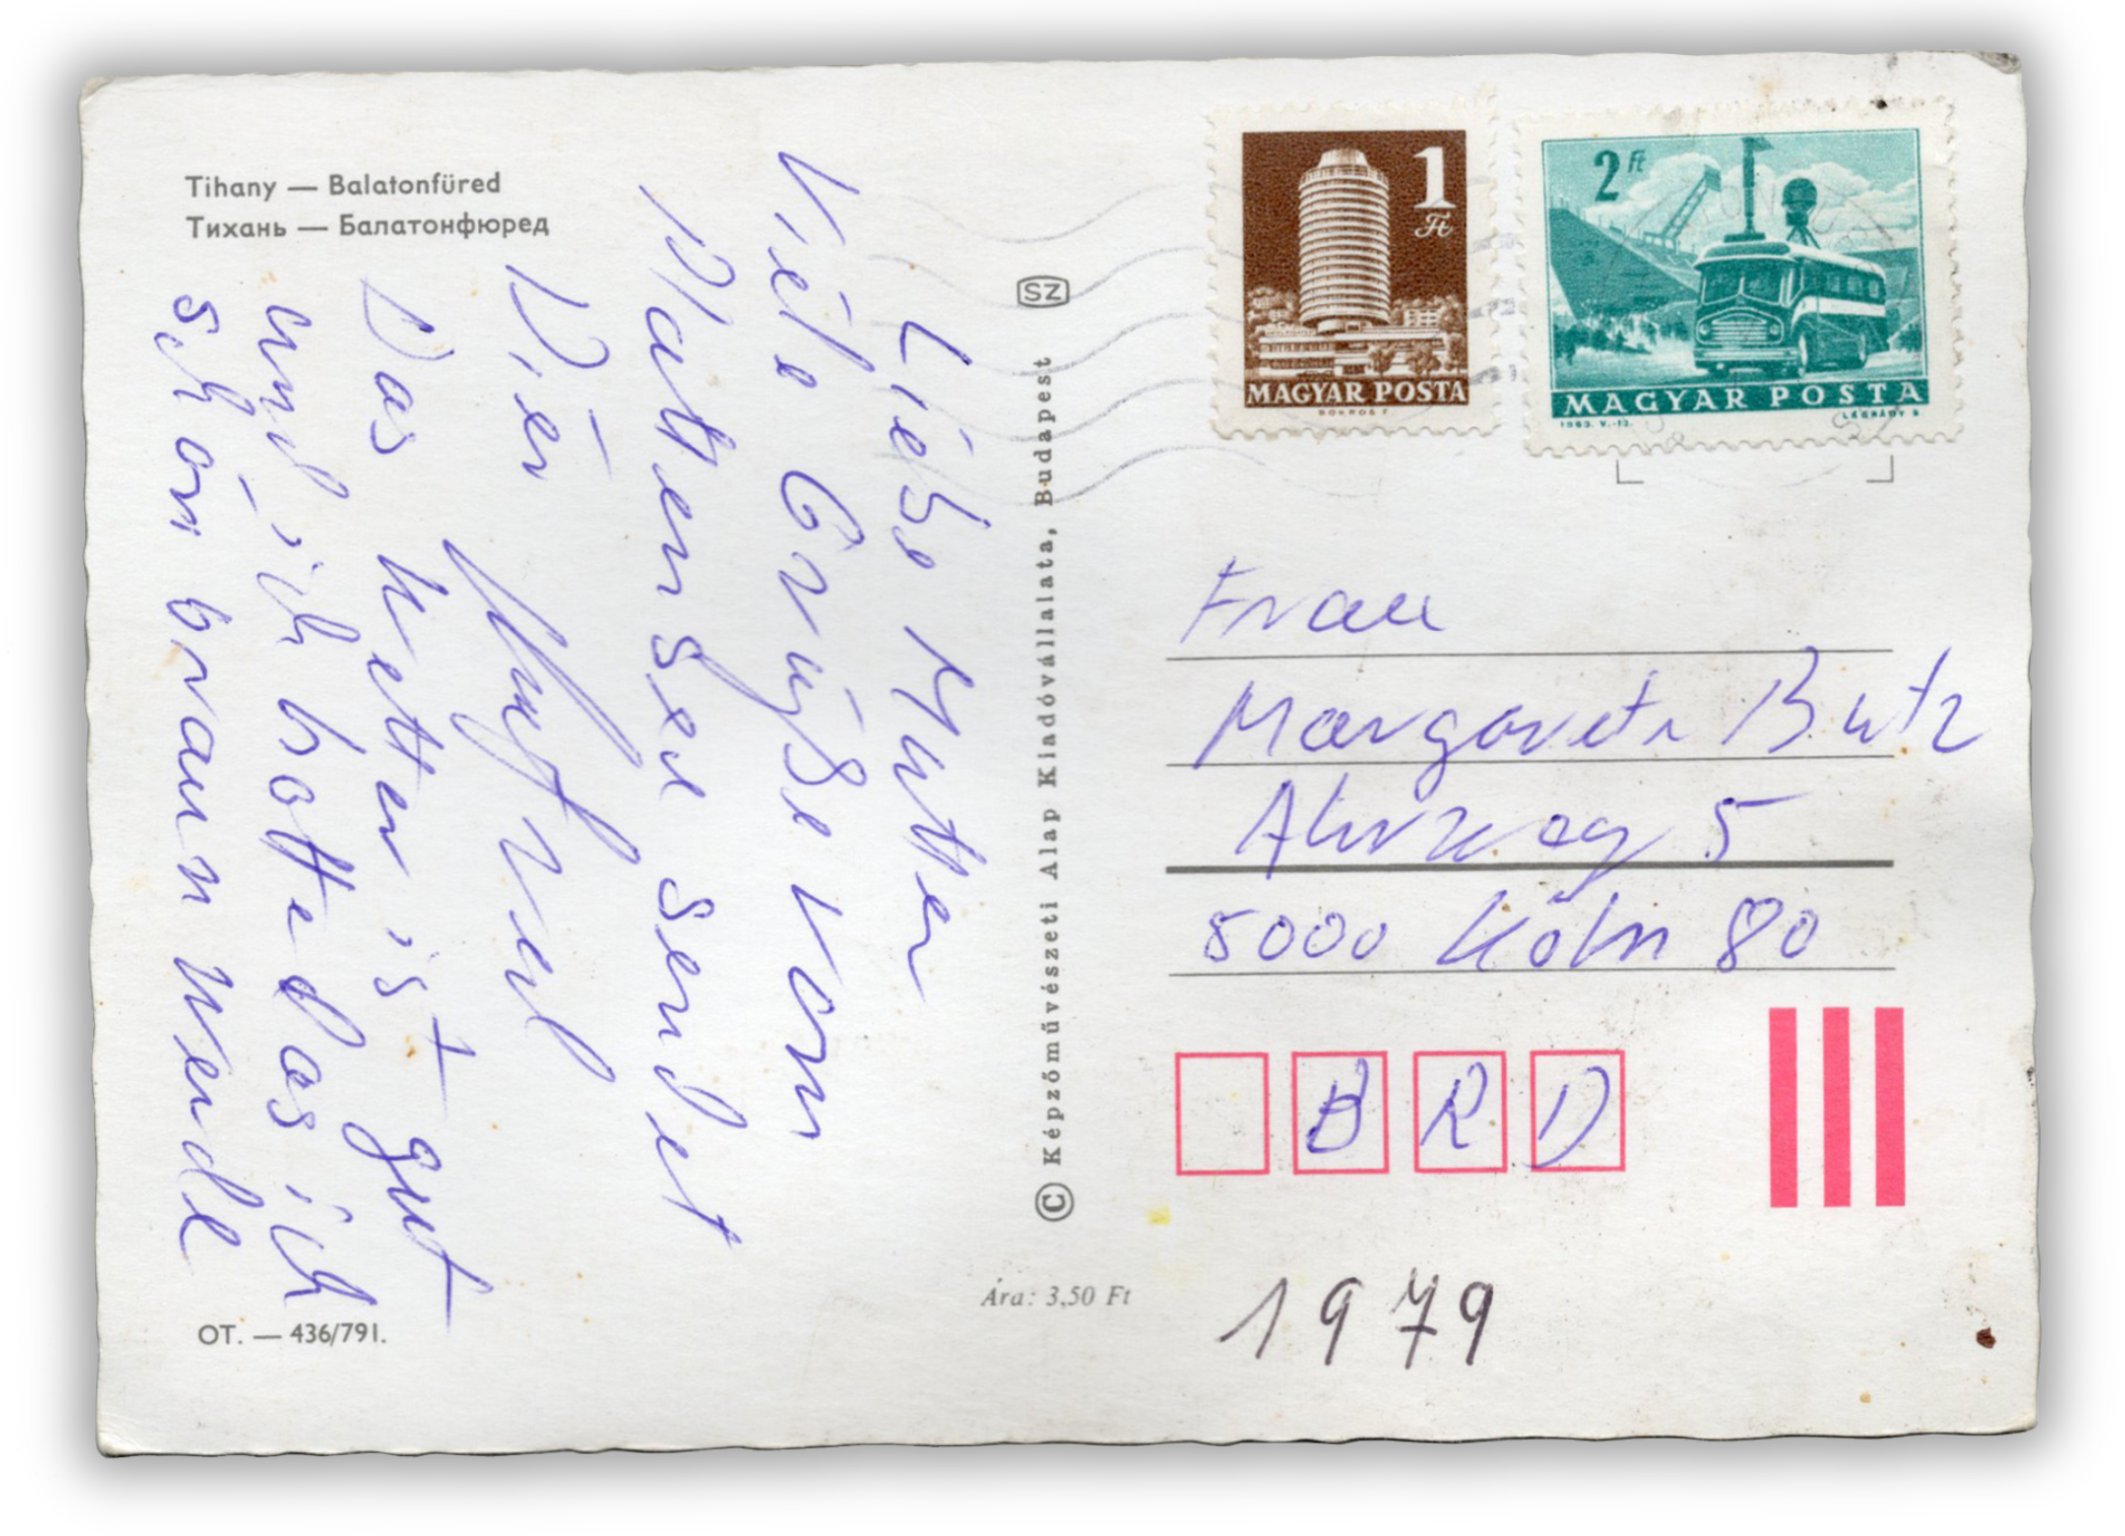 Tihany — Balatonfüred
Тихань — Балатонфюред
Liebe Mutter
Viele Grüße vom
Plattensee sendet
Dir Manfred
Das Wetter ist gut
und ich hoffe das ich
schön braun werde
OT. — 436/791.
SZ
© Képzőművészeti Alap Kiadóvállalata, Budapest
Ára: 3,50 Ft
1 Ft
MAGYAR POSTA
BOKROS F.
2 Ft
MAGYAR POSTA
LÉGRÁDY S.
Frau
Margarete Butz
Ahrweg 5
5000 Köln 80
BRD
1979